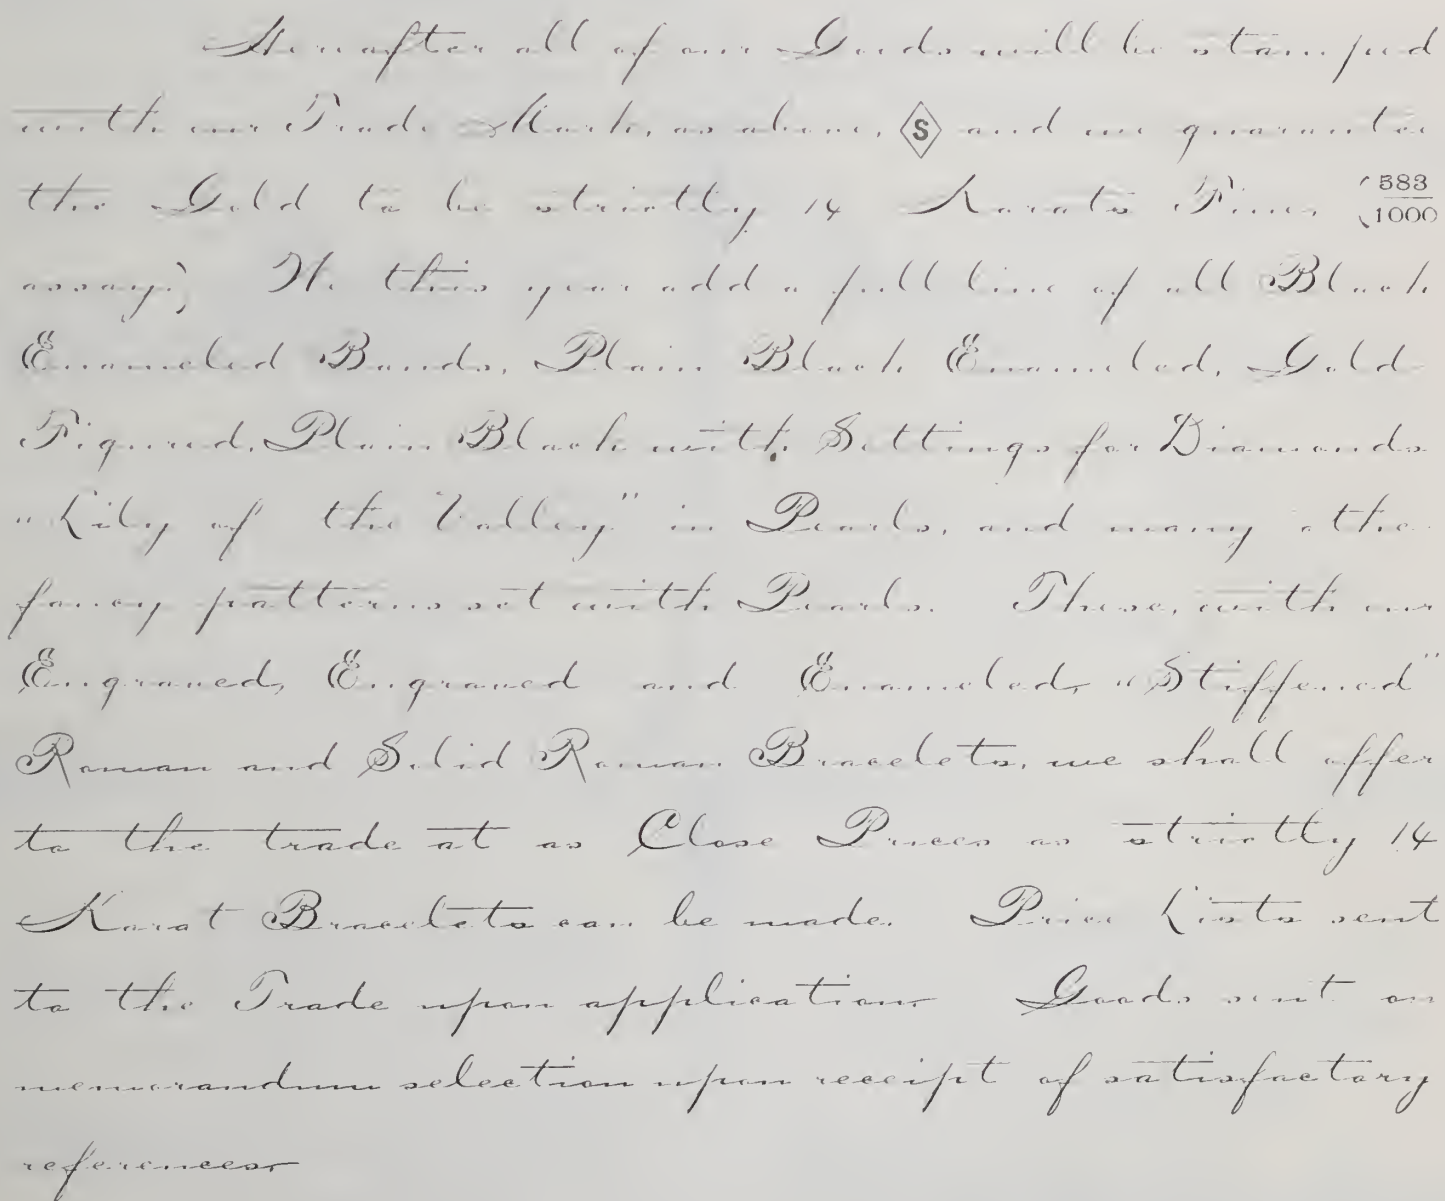 Hereafter all of our Goods will be stamped
with our Trade Mark, as above, S and we guarantee
the Gold to be strictly 14 Karats Fine, (583/1000
assay.) We this year add a full line of all Black
Enameled Bands, Plain Black Enameled, Gold
Figured, Plain Black with Settings for Diamonds
"Lily of the Valley" in Pearls, and many othe
fancy patterns set with Pearls. These, with our
Engraved, Engraved and Enameled, "Stiffened"
Roman and Solid Roman Bracelets, we shall offer
to the trade at as Close Prices as strictly 14
Karat Bracelets can be made. Price Lists sent
to the Trade upon application. Goods sent on
memorandum selection upon receipt of satisfactory
references.